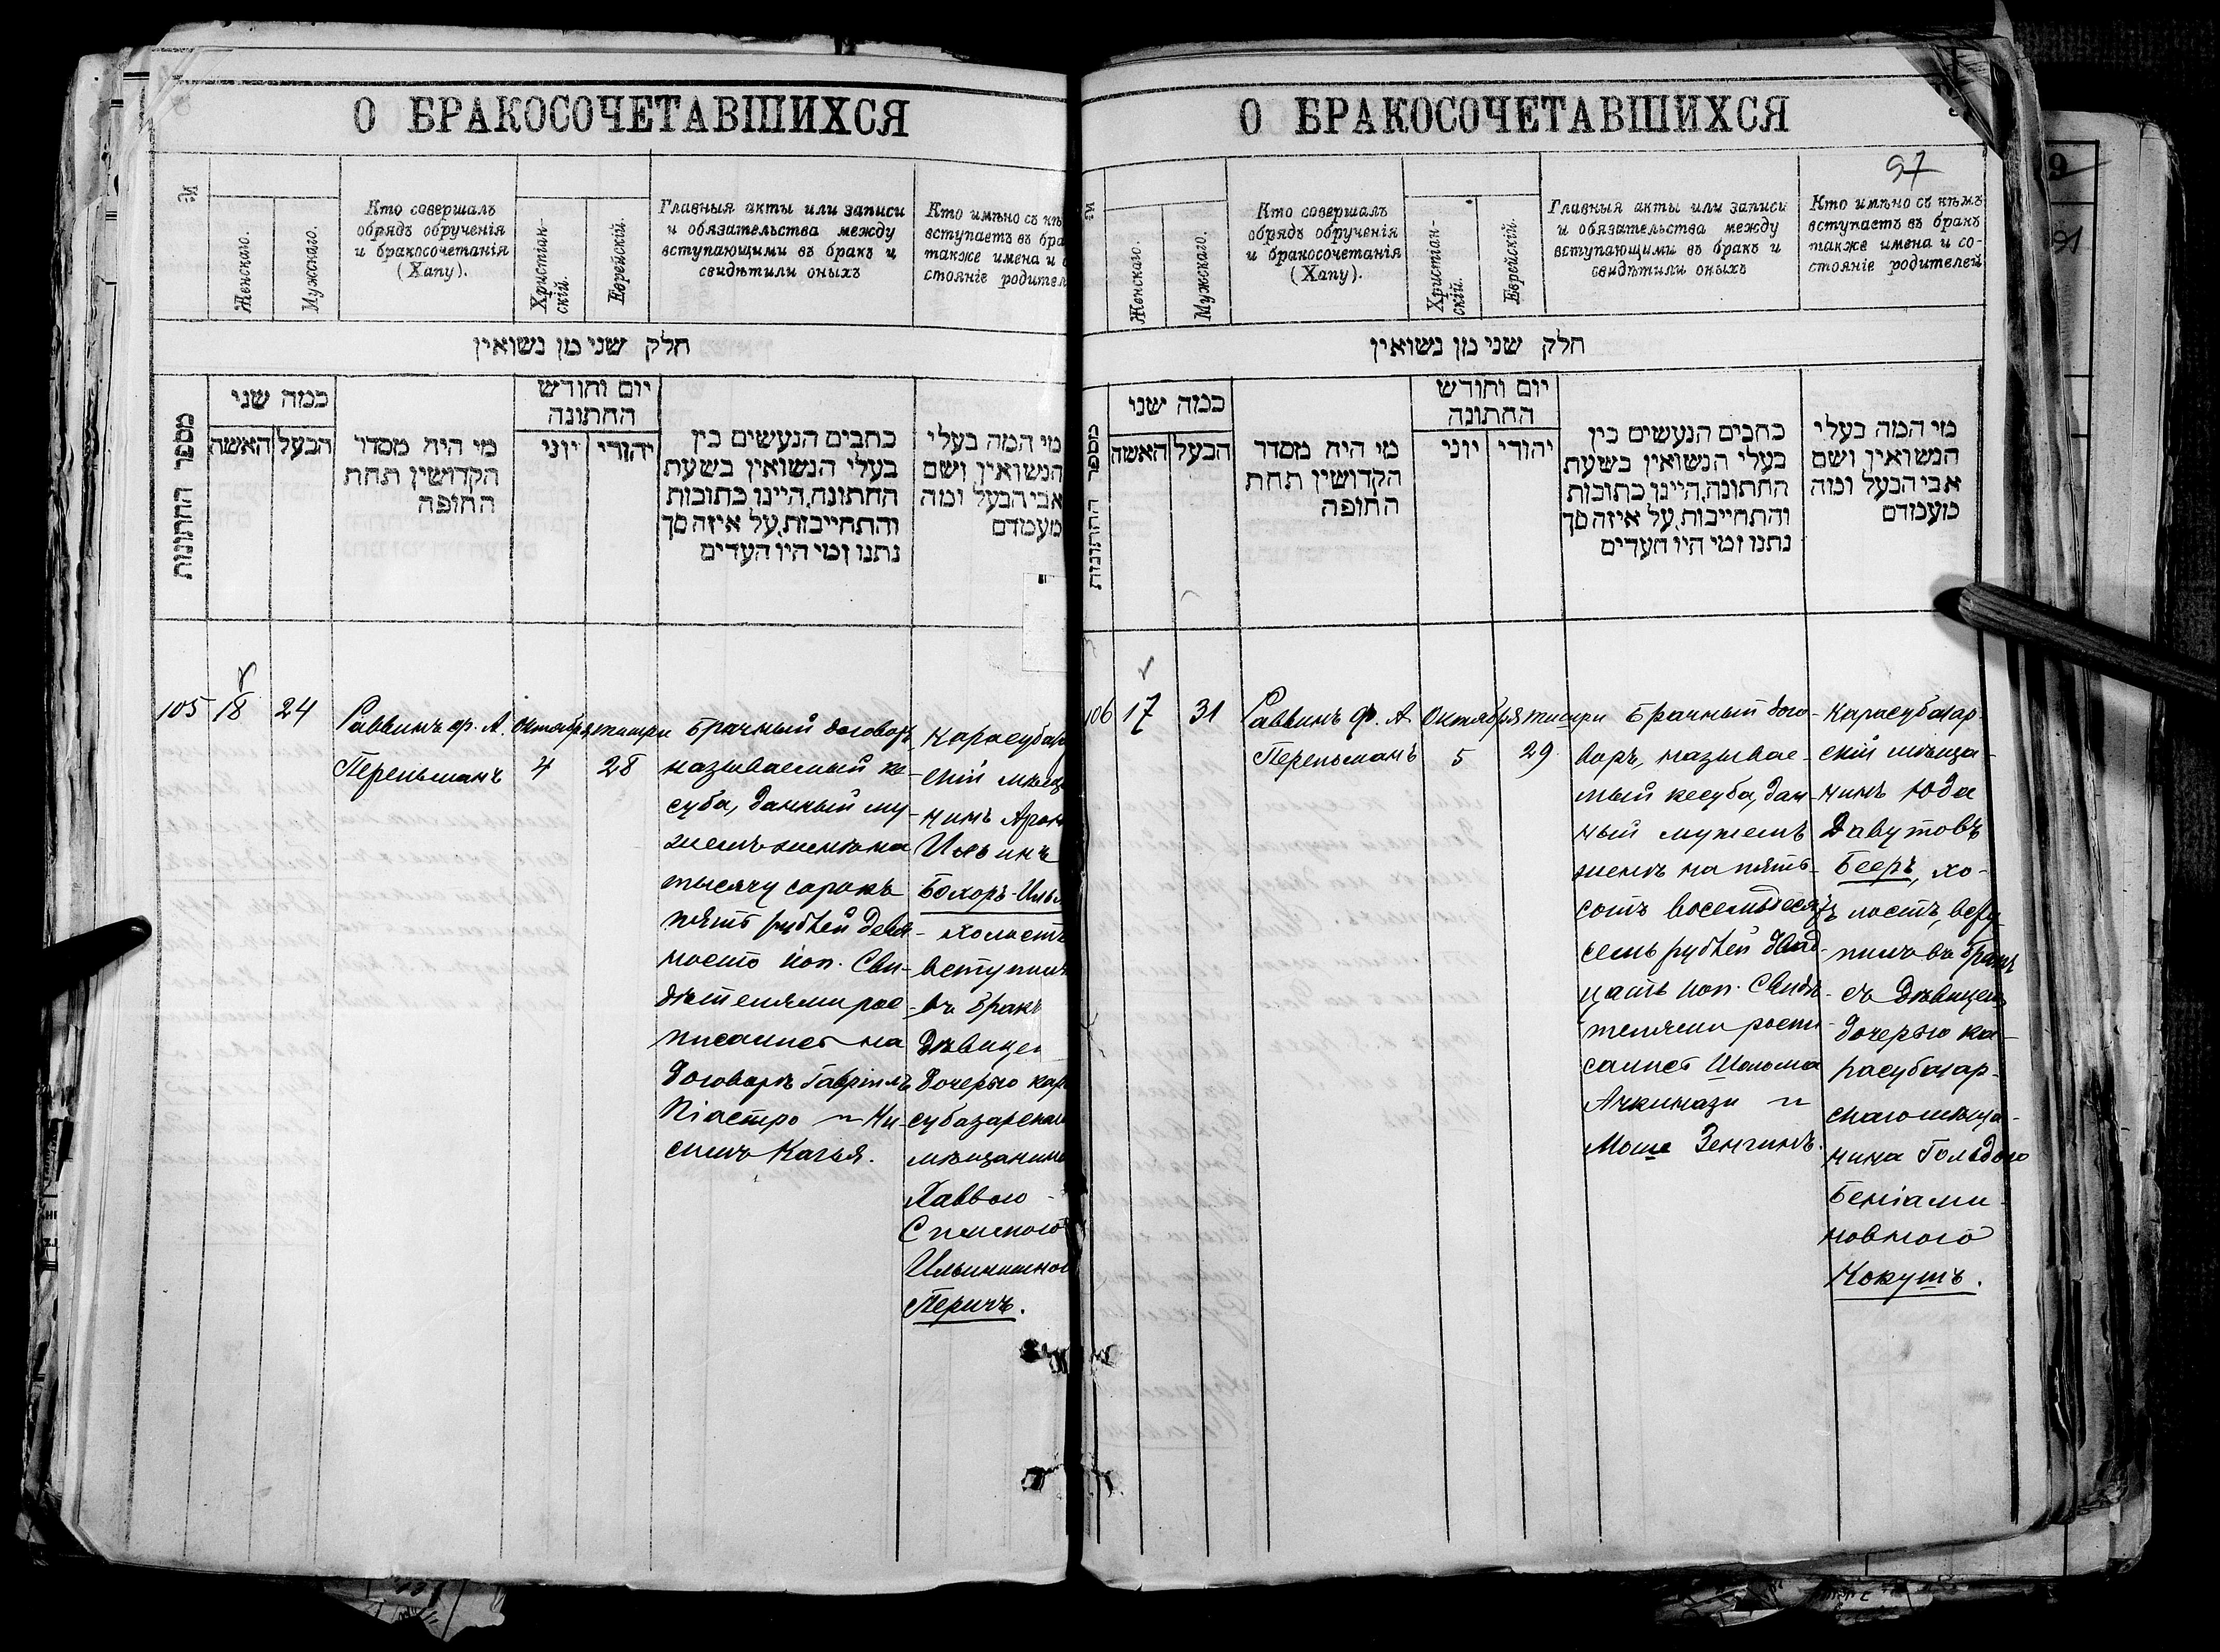 О БРАКОСОЧЕТАВШИХСЯ
№
Женскаго.
Мужскаго.
Кто совершалъ
обрядъ обрученія
и бракосочетанія
(Хапу).
Христіан-
скій.
Еврейскій.
Главныя акты или записи
и обязательства между
вступающими въ бракъ и
свидѣтили оныхъ
Кто имѣно съ кѣ
вступаетъ въ бра
также имена и с
стояніе родител
חלק שני מן נשואין
מספר החתונות
כמה שני
האשה
הבעל
מי היה מסדר
הקדושין תחת
החופה
יום וחודש
החתונה
יוני
יהודי
כתבים הנעשים בין
בעלי הנשואין בשעת
החתונה, היינו כתובות
והתחייבות, על איזה סך
נתנו ומי היו העדים
מי המה בעלי
הנשואין ושם
אבי הבעל ומה
מעמדם
105
18
24
Раввинъ ф. А.
Перельманъ
Октября
4
тишри
28
Брачный договоръ
называемый ке-
суба, данный му-
жемъ женѣ на
тысячу сорокъ
пять рублей девя-
носто коп. Сви-
дѣтелями рос-
писались на
договорѣ Гавріилъ
Піастро и Ни-
симъ Качья.
Карасубаз
скій мѣща
нинъ Арон
Ильинъ
Бохоръ-Илья
холостъ
вступилъ
въ бракъ
дѣвицей
дочерью кар
субазарскаго
мѣщанина
Хаввою
Симхою
Ильинишной
Перичъ.
О БРАКОСОЧЕТАВШИХСЯ
97
№
Женскаго.
Мужскаго.
Кто совершалъ
обрядъ обрученія
и бракосочетанія
(Хапу).
Христіан-
скій.
Еврейскій.
Главныя акты или записи
и обязательства между
вступающими въ бракъ и
свидѣтили оныхъ
Кто имѣно съ кѣмъ
вступаетъ въ бракъ
также имена и со-
стояніе родителей
חלק שני מן נשואין
מספר החתונות
כמה שני
האשה
הבעל
מי היה מסדר
הקדושין תחת
החופה
יום וחודש
החתונה
יוני
יהודי
כתבים הנעשים בין
בעלי הנשואין בשעת
החתונה, היינו כתובות
והתחייבות, על איזה סך
נתנו ומי היו העדים
מי המה בעלי
הנשואין ושם
אבי הבעל ומה
מעמדם
106
17
31
Раввинъ ф. А
Перельманъ
Октября
5
тишри
29
Брачный дого-
воръ, называе-
мый кесуба, дан-
ный мужемъ
женѣ на пять-
сотъ восемьдесятъ
семь рублей двад-
цать коп. Свидѣ-
телями роспи-
сались Шолома
Ачкинази и
Моше Зенгинъ.
Карасубазар-
скій мѣща-
нинъ Юда
Давутовъ
Бееръ, хо-
лостъ, всту
пилъ въ бракъ
съ дѣвицей
дочерью ка-
расубазар-
скаго мѣща-
нина Гольдою
Беніами-
новною
Кокушъ.